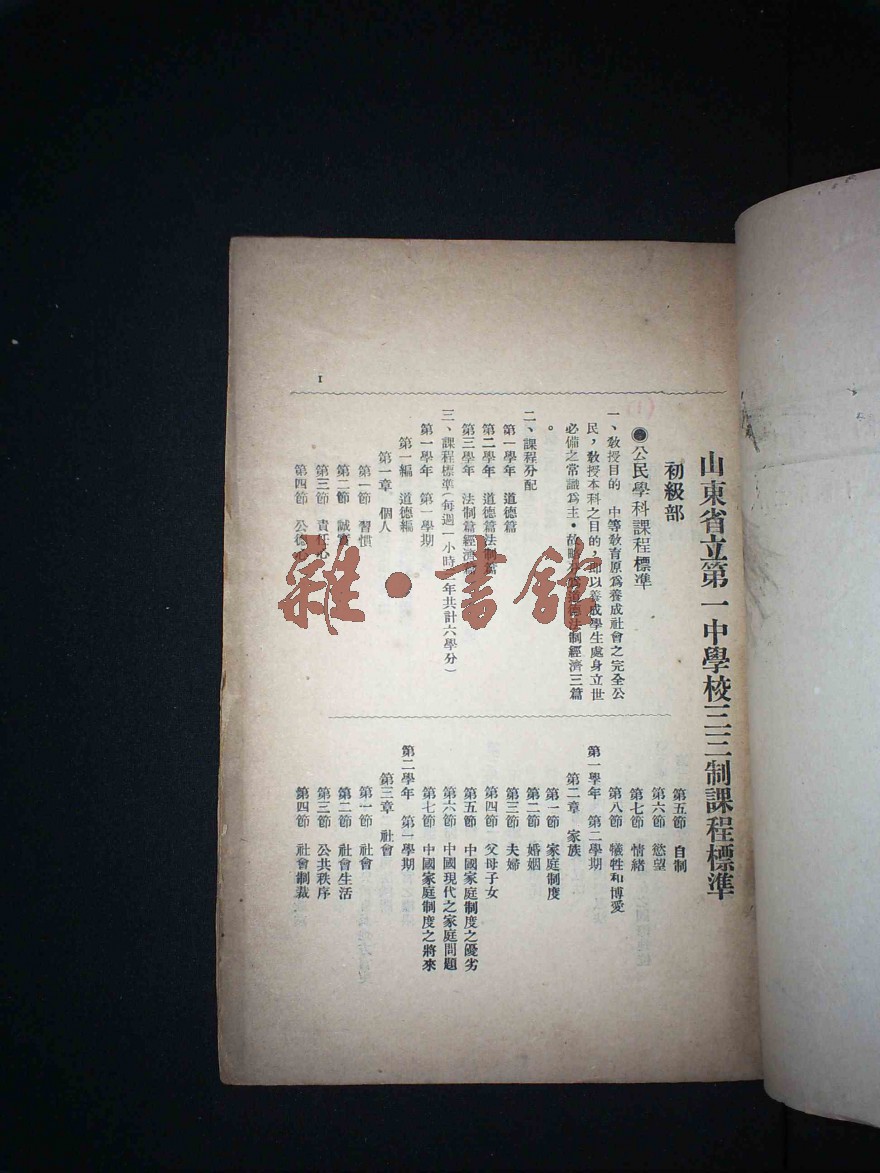 山東省立第一中學校三三制課程標準
初級部
●公民學科課程標準
一、教授目的 中等教育原爲養成社會之完全公
民，教授本科之目的，即以養成學生處身立世
必備之常識爲主・故 道德法制經濟三篇
。
二、課程分配
第一學年 道德篇
第二學年 道德篇法制篇
第三學年 法制篇經濟篇
三、課程標準(每週一小時 年共計六學分)
第一學年 第一學期
第一編 道德編
第一章 個人
第一節 習慣
第二節 誠實
第三節 責任心
第四節 公德心
第五節 自制
第六節 慾望
第七節 情緒
第八節 犧牲和博愛
第一學年 第二學期
第二章 家族
第一節 家庭制度
第二節 婚姻
第三節 夫婦
第四節 父母子女
第五節 中國家庭制度之優劣
第六節 中國現代之家庭問題
第七節 中國家庭制度之將來
第二學年 第一學期
第三章 社會
第一節 社會
第二節 社會生活
第三節 公共秩序
第四節 社會制裁
1
雜・書館